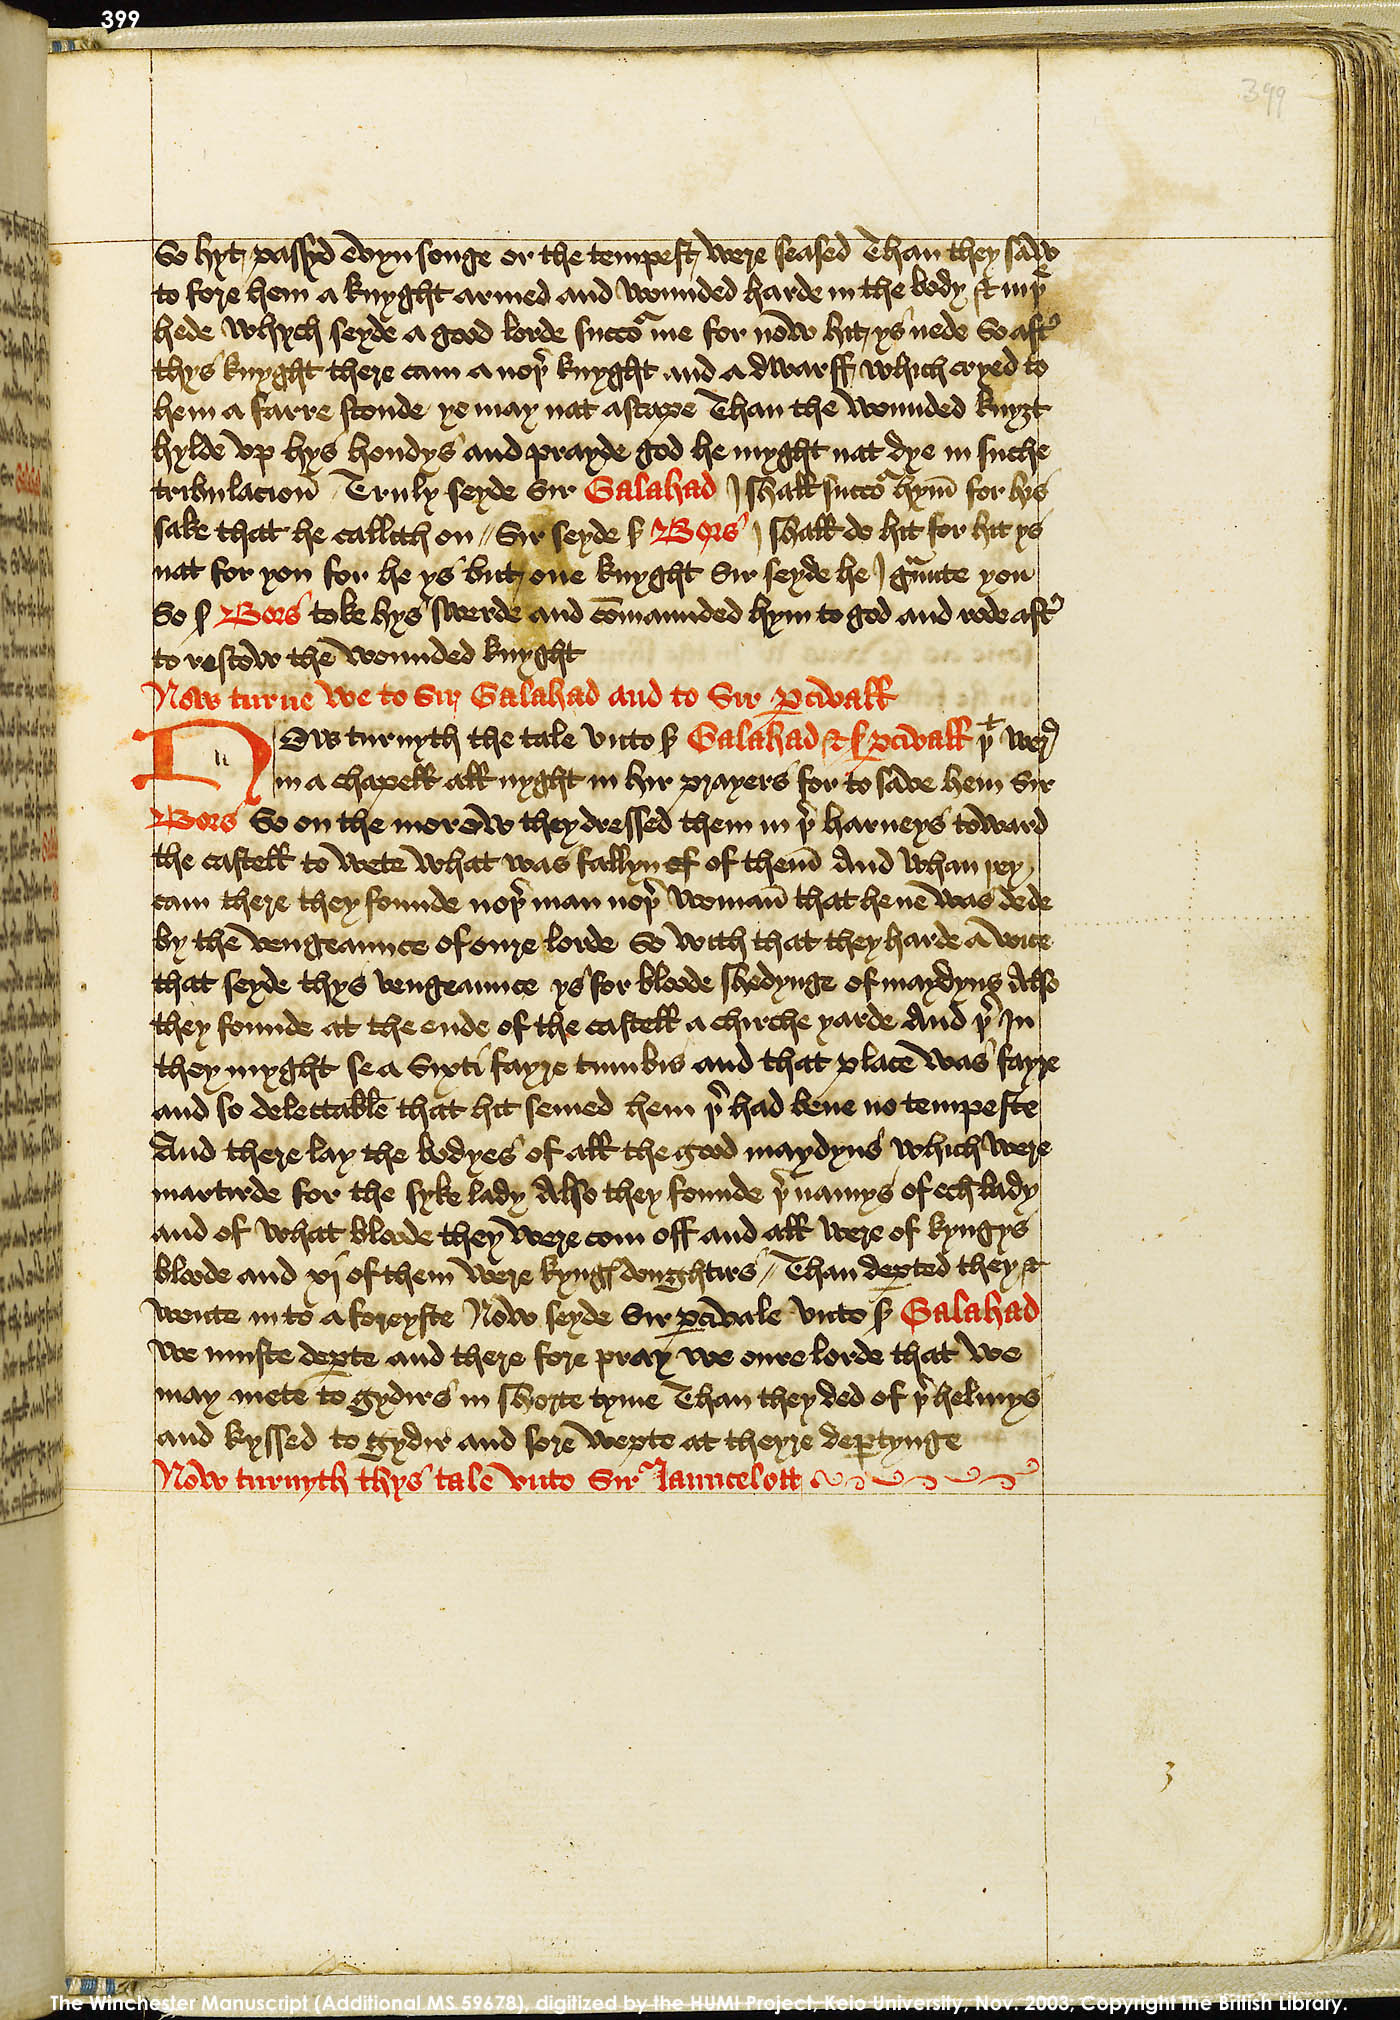 399
399
So hyt passyd evyn songe or the tempest were seased Than they saw
to fore hem a knyght armed and wounded harde in the body & in þe
hede whych seyde a good lorde succor me for now hit ys nede So aftir
thys knyght there cam a noþer knyght and a dwarff which cryed to
hem a farre stonde ye may nat ascape Than the wounded knyȝt
hylde vp hys hondys and prayde god he myght nat dye in suche
tribulacion Truly seyde Sir Galahad I shall succor hym for hys
sake that he callith on // Sir seyde sir Bors I shall do hit for hit ys
nat for you for he ys but one knyght Sir seyde he I graunte you
So sir Bors toke hys swerde and comaunded hym to god and rode aftir
to rescow the wounded knyght
Now turne we to Sir Galahad and to Sir percivall
Now turnyth the tale vnto sir Galahad & sir percivall þt were
in a chapell all nyght in hir prayers for to save hem Sir
Bors So on the morow they dressed them in þer harneys toward
the castell to wete what was fallyn of of them And whan þey
cam there they founde noþer man noþer woman that he ne was dede
by the vengeaunce of oure lorde So with that they harde a voice
that seyde thys vengeaunce ys for bloode shedynge of maydyns Also
they founde at the ende of the castell a chirche yarde And þer In
they myght se a Sixti fayre tumbis and that place was fayre
and so delectable that hit semed hem þer had bene no tempeste
And there lay the bodyes of all the good maydyns which were
martirde for the syke lady Also they founde þer namys of ech lady
and of what bloode they were com off and all were of kyngys
bloode and xj of them were kyngis doughtirs // Than departed they &
wente in to a foreyste Now seyde Sir percivale vnto sir Galahad
we muste departe and there fore pray we oure lorde that we
may mete to gydirs in shorte tyme Than they ded of þer helmys
and kyssed to gydir and sore wepte at theyre departynge
Now turnyth thys tale vnto Sir Launcelott
3
The Winchester Manuscript (Additional MS 59678), digitized by the HUMI Project, Keio University, Nov. 2003, Copyright The British Library.